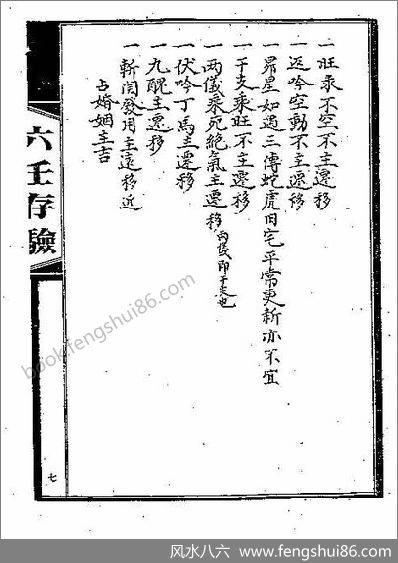 一旺桼不空不主遷移
一返吟空動不主遷移
一昴星如遇三傳蛇虎旧宅平常更新亦不宜
一干支乘旺不主遷移
一两儀乘死絕氣主遷移 两儀即干支也
一伏吟丁馬主遷移
一九醜主遷移
一斬関發用主遠移近
占婚姻主吉
六壬存驗
七
book.fengshui86.com
风水八六 www.fengshui86.com